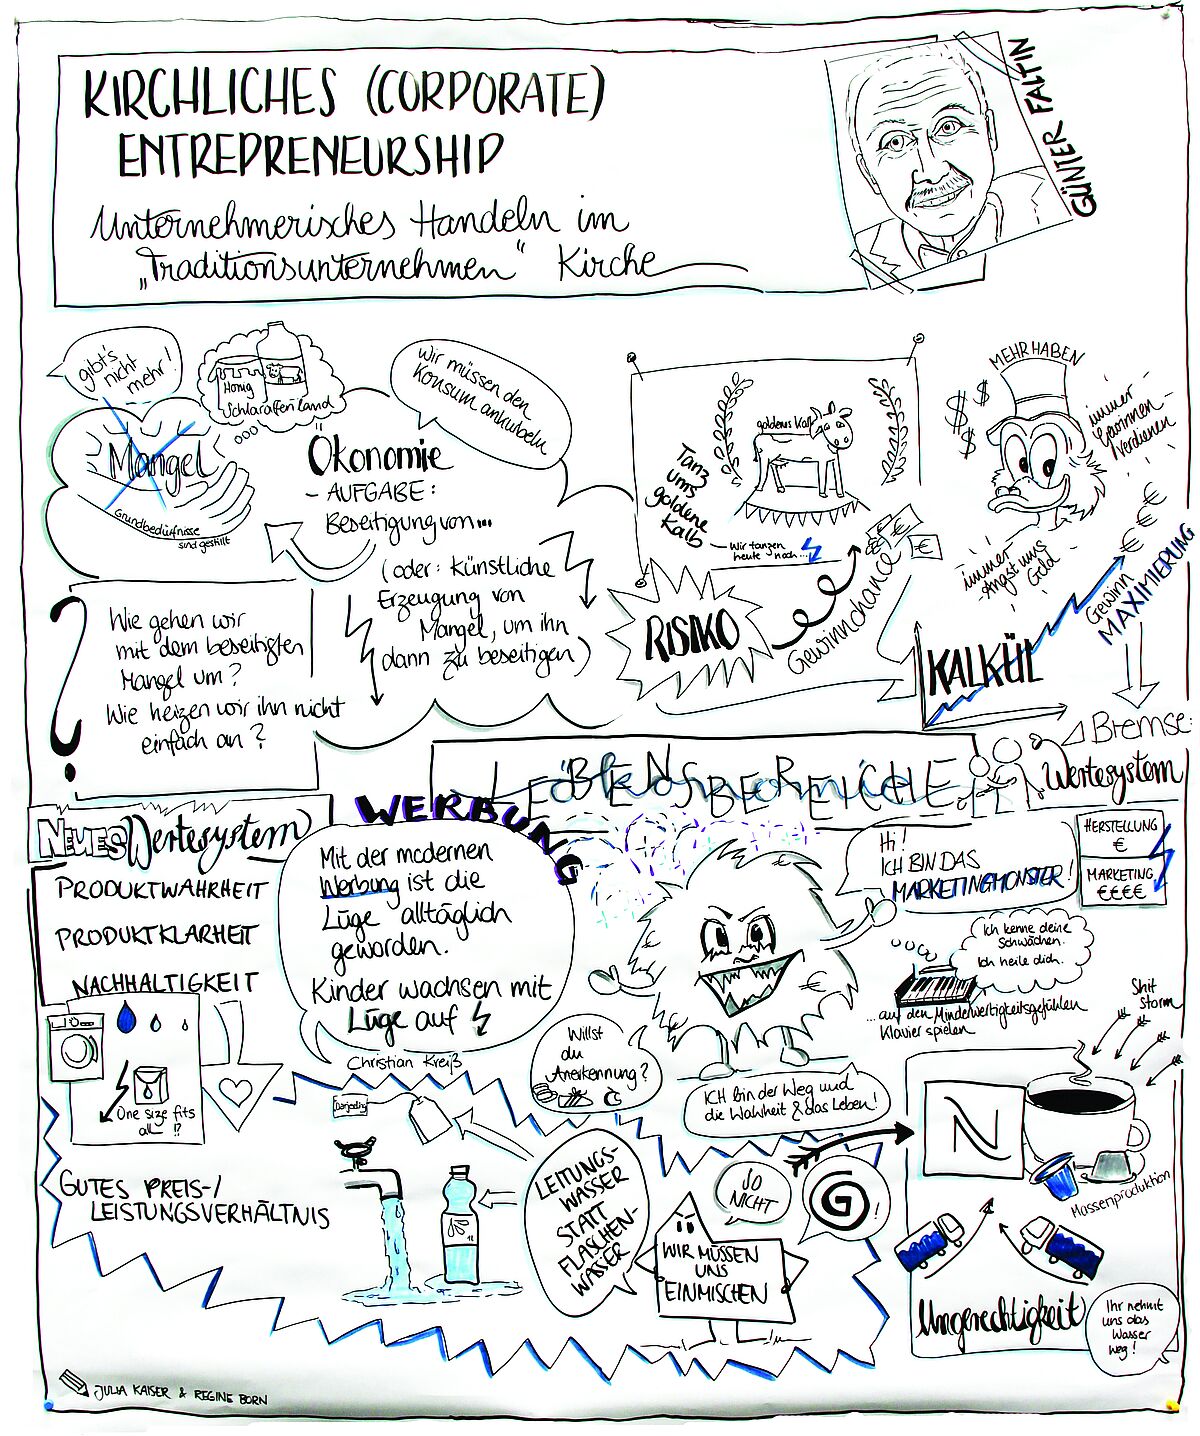 KIRCHLICHES (CORPORATE)
ENTREPRENEURSHIP
Unternehmerisches Handeln im
„Traditionsunternehmen“ Kirche
GÜNTER FALTIN
gibt's
nicht
mehr!
Honig
Schlaraffenland
Mangel
Grundbedürfnisse
sind gestillt
wir müssen den
Konsum ankurbeln
Ökonomie
- AUFGABE:
Beseitigung von...
(oder: Künstliche
Erzeugung von
Mangel, um ihn
dann zu beseitigen)
?
Wie gehen wir
mit dem beseitigten
Mangel um?
Wie heizen wir ihn nicht
einfach an?
goldenes Kalb
Tanz
ums
goldene
Kalb
- Wir tanzen
heute noch...
RISIKO
Gewinnchance
€
€
MEHR HABEN
$
$
$
immer
Gewinnen -
Verdienen
immer
Angst ums
Geld
€
€
€
Gewinn
MAXIMIERUNG
KALKÜL
Bremse:
Wertesystem
LEBENSBEREICHE
NEUES Wertesystem
PRODUKTWAHRHEIT
PRODUKTKLARHEIT
NACHHALTIGKEIT
One size fits
all !?
GUTES PREIS-/
LEISTUNGSVERHÄLTNIS
WERBUNG
Mit der modernen
Werbung ist die
Lüge alltäglich
geworden.
Kinder wachsen mit
Lüge auf
Christian Kreiß
€
€
Hi!
ICH BIN DAS
MARKETINGMONSTER!
HERSTELLUNG
€
MARKETING
€€€€
Ich kenne deine
Schwächen.
Ich heile dich.
...auf den Minderwertigkeitsgefühlen
Klavier spielen
Willst
du
Anerkennung?
ICH bin der Weg und
die Wahrheit & das Leben!
Shit
Storm
N
Massenproduktion
Ungerechtigkeit
Ihr nehmt
uns das
Wasser
weg!
Darjeeling
1L
LEITUNGS-
WASSER
STATT
FLASCHEN-
WASSER
SO
NICHT
G!
WIR MÜSSEN
UNS
EINMISCHEN
JULIA KAISER & REGINE BORN